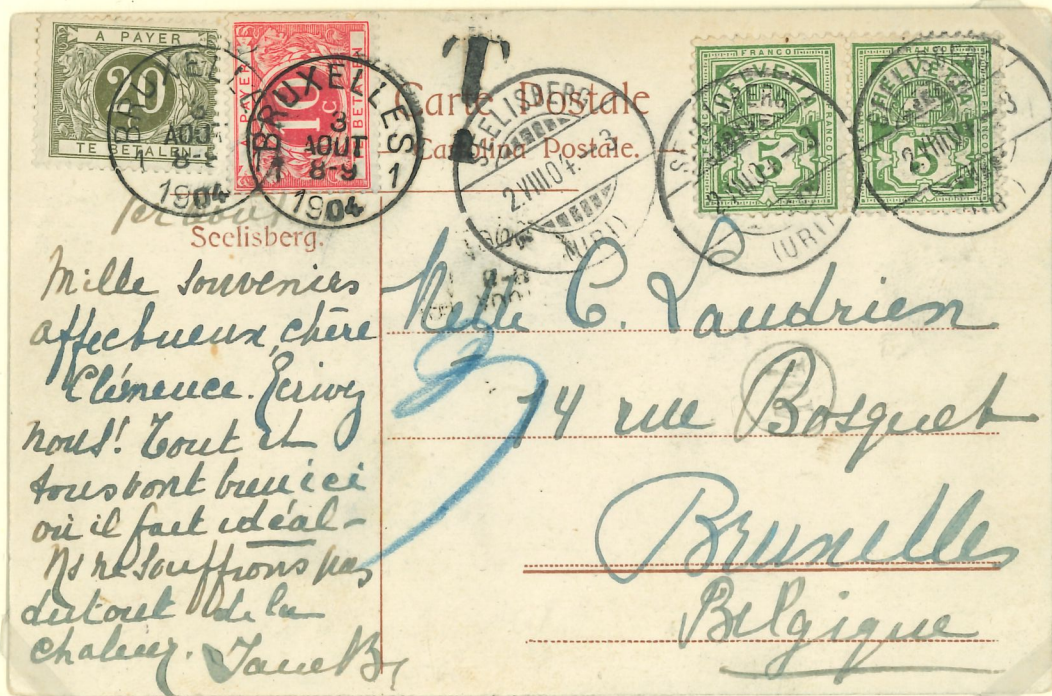 A PAYER
20
TE BETALEN
A PAYER
10 c
BETALEN
BRUXELLES
3
AOUT
8-9
1904
1
BRUXELLES
3
AOUT
8-9
1904
1
T
Carte Postale
Cartolina Postale.
SEELISBERG
2.VIII.04.-3
(URI)
FRANCO
HELVETIA
5
FRANCO
HELVETIA
5
SEELISBERG
2.VIII.04.-3
(URI)
2.VIII.04.-3
(URI)
Seelisberg.
Mille souvenirs
affectueux, chère
Clémence. Ecrivez
nous! Tout et
tous vont bien ici
où il fait idéal-
Ns ne souffrons pas
du tout de la
chaleur. Jane B,
Melle C. Laudrien
14 rue Bosquet
Bruxelles
Belgique